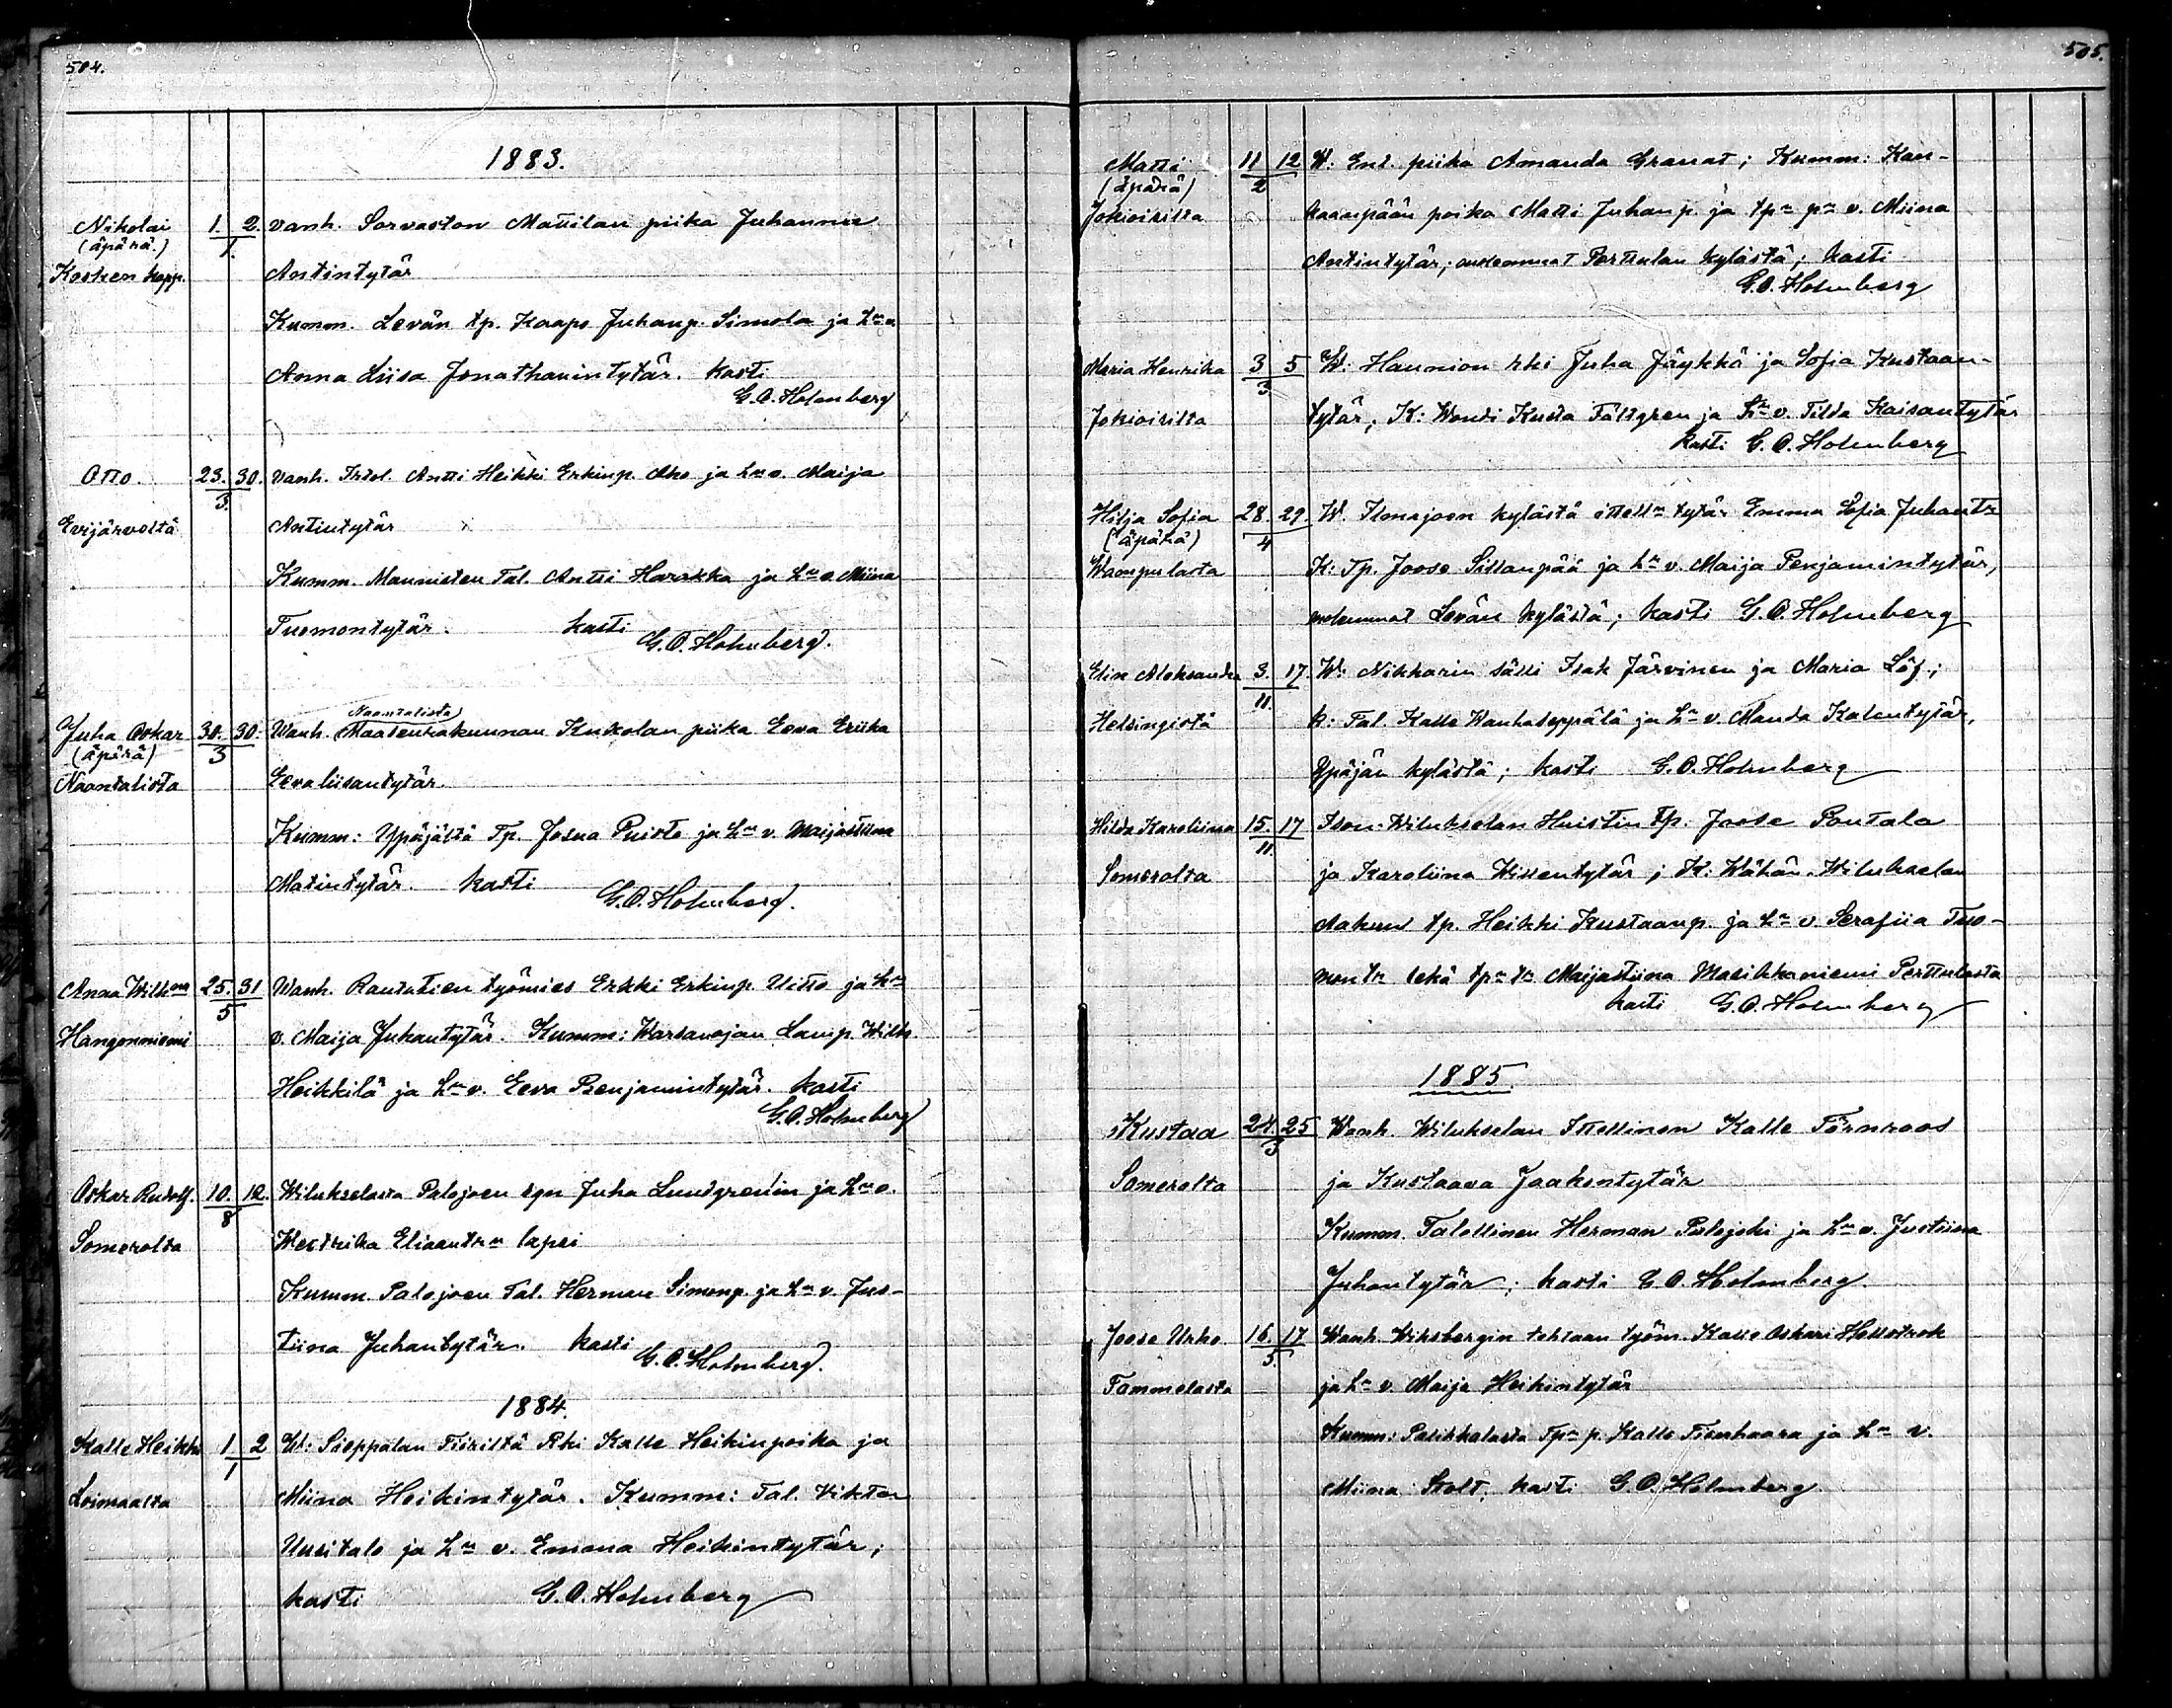 504.
1883.
Nikolai 1. 2. vanh. Sorvaston Mattilan piika Juhanna
(äpärä.) 1.
Kosken kapp. Antintytär
Kumm. Levän tp. Kaapo Juhanp. Simola ja
Anna Liisa Jonathanintytär. kasti
G.O. Holmberg
Otto. 23. 30. vanh. Antti Heikki Erkinp. Aho ja v. Maija
3.
Evijärveltä Antintytär
Kumm. Mannisten Tal. Antti Harakka ja v. Miina
Tuomontytär. kasti
G.O. Holmberg.
Naantalista
Juha Oskar 30. 30. Wanh. Maaseurakunnan Kukolan piika Eeva Eriika
(äpärä) 3
Naantalista Eevaliisantytär.
Kumm: Yppäjältä Tp. Josua Puisto ja v. Maijastiina
Matintytär. kasti
G.O. Holmberg.
Anna Wilhna 25. 31 Wanh. Rautatien työmies Erkki Erkinp. Uitto ja
5
Hangonniemi v. Maija Juhantytär. Kumm: Warsanojan Lamp. Wilh.
Heikkilä ja v. Eeva Benjamintytär. kasti
G.O. Holmberg
Oskar Rudolf. 10. 12. Wilukselasta Palojoen Juha Lundgrenin ja v.
8
Somerolta Eliaantrn lapsi
Kumm. Palojoen Tal. Herman Simonp. ja v. Jus-
tiina Juhantytär. kasti
G.O. Holmberg.
1884.
Kalle Heikki 1 2 W: Sieppalan Kalle Heikinpoika ja
1
Loimaalta Miina Heikintytär. Kumm: Tal. Viktor
Uusitalo ja v. Emma Heikintytär;
kasti G.O. Holmberg
505.
Matti 11 12 W. piika Amanda Granat; Kumm: Kan-
(äpärä) 2
Jokioisilta kaanpään poika Matti Juhanp. ja v. Miina
Antintytär; molemmat Perttulan kylästä; kasti
G.O. Holmberg
Maria Henrika 3 5 W: Haunion Juha Jäykkä ja Sofia Kustaan-
3
Jokioisilta tytär; K: Wouti Kusta Fältgren ja v. Tilda Kaisantytär
kasti G.O. Holmberg
Hilja Sofia 28. 29. W. Ilmajoen kylästä tytär Emma Sofia Juhantr
(äpärä) 4
Wampulasta K: Tp. Joose Sillanpää ja v. Maija Penjamintytär,
molemmat Levän kylästä; kasti G.O. Holmberg
Elin Aleksandra 3. 17. W: Nikkarin sälli Isak Järvinen ja Maria Löf;
11.
Helsingistä k: Tal. Kalle Wanhaseppälä ja v. Manda Kalentytär,
Ypäjän kylästä; kasti G.O. Holmberg
Hilda Karoliina 15. 17 Ison-Wilukselan Huistin tp. Joose Pontala
11.
Somerolta ja Karoliina Willentytär; K: Wähän-Wilukselan
Aakun tp. Heikki Kustaanp. ja v. Serafiia Tuo-
montr sekä Maijastiina Masikkaniemi Perttulasta
kasti G.O. Holmberg
1885.
Kustaa 24. 25 Wanh. Wilukselan Itsellinen Kalle Törnroos
3
Somerolta ja Kustaava Jaakontytär
Kumm. Talollinen Herman Palojoki ja v. Justiina
Juhantytär; kasti G.O. Holmberg.
Joose Urho 16. 17 Wanh. Wiksbergin tehtaan työm. Kalle Oskari Hellstrok
5.
Tammelasta ja v. Maija Heikintytär
Kumm: Palikkalasta p. Kalle Tienhaara ja v.
Miina Stolt; kasti G.O. Holmberg.